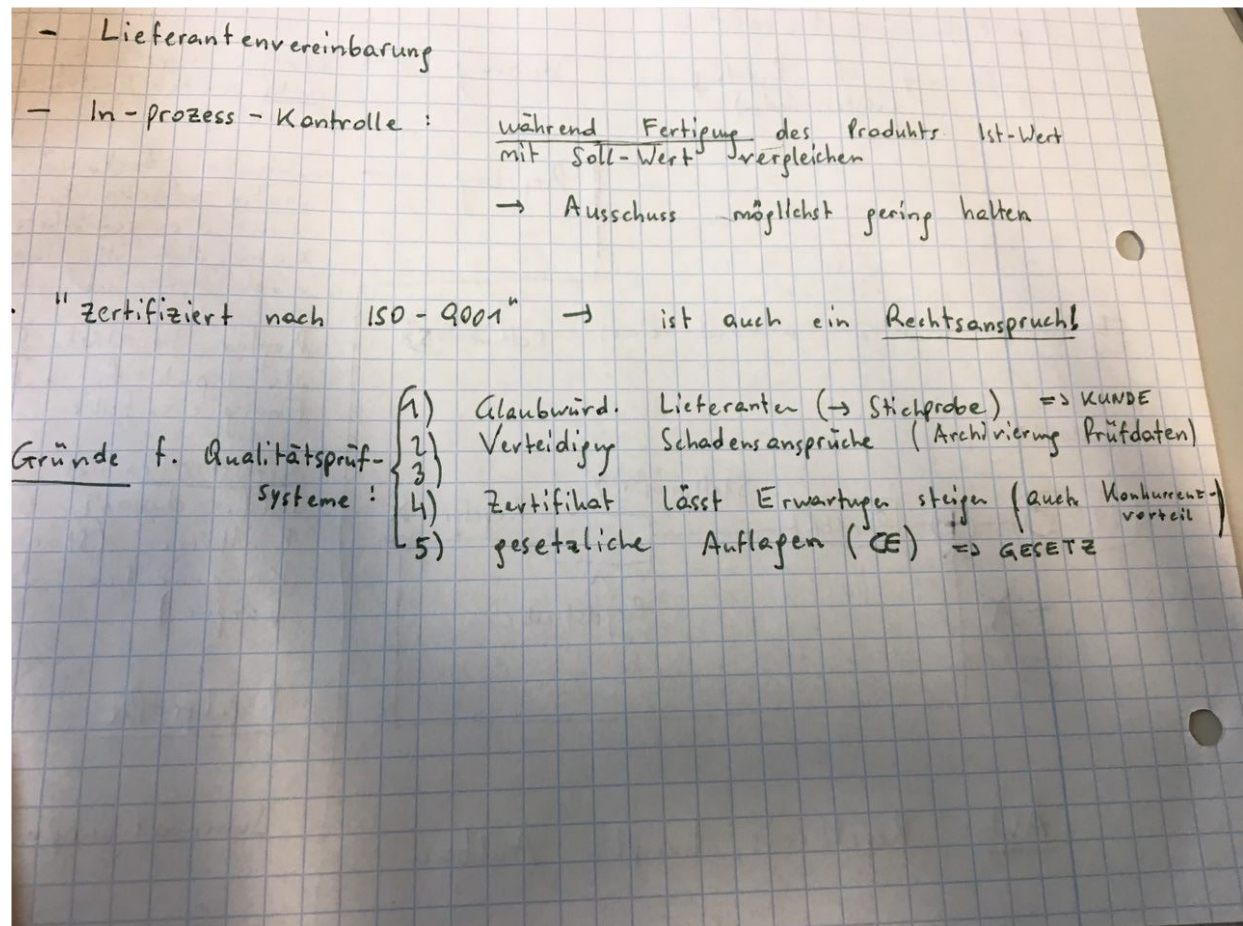 - Lieferantenvereinbarung
- In-prozess-Kontrolle : während Fertigung des Produkts Ist-Wert
mit Soll-Wert vergleichen
→ Ausschuss möglichst gering halten
. "Zertifiziert nach ISO-9001" → ist auch ein Rechtsanspruch!
Gründe f. Qualitätsprüf-
systeme :
1) Glaubwürd. Lieferanten (→ Stichprobe) => KUNDE
2) Verteidigung Schadensansprüche (Archivierung Prüfdaten)
3)
4) Zertifikat lässt Erwartungen steigen (auch Konkurrenz-
vorteil)
5) gesetzliche Auflagen (CE) => GESETZ